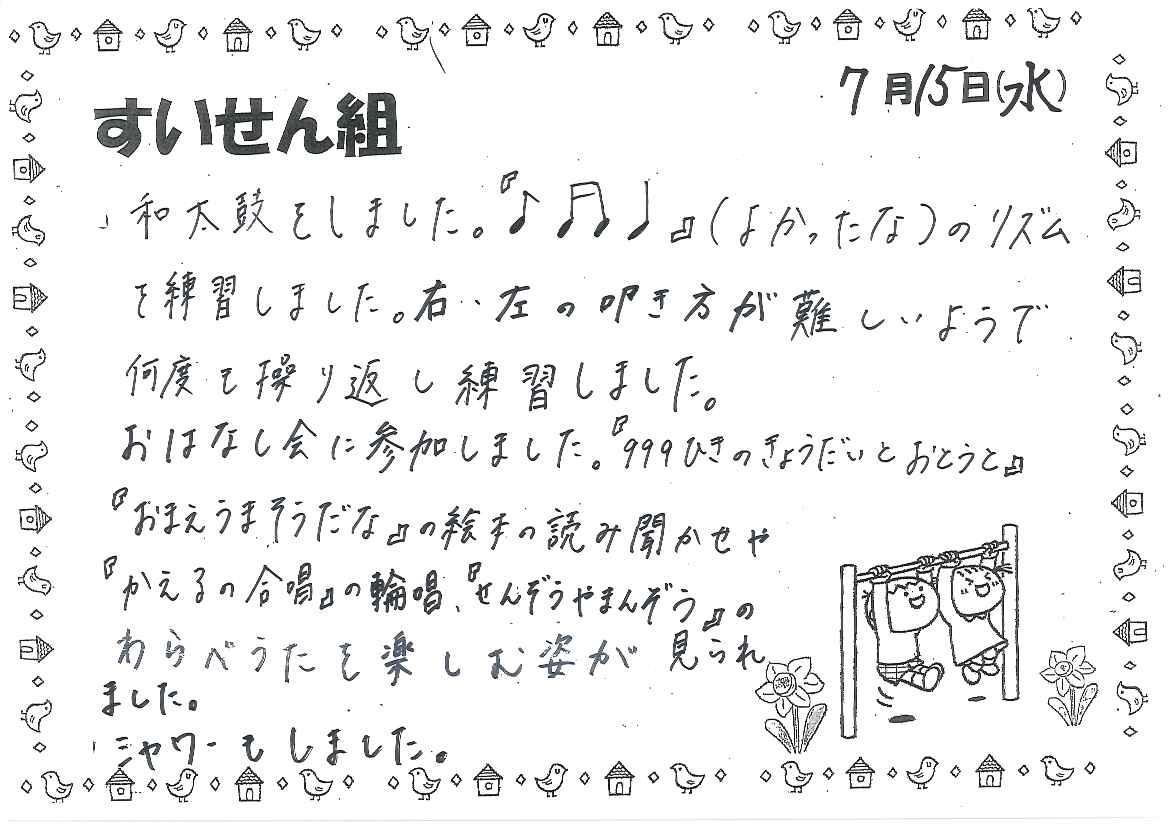 7月15日(水)
すいせん組
・和太鼓をしました。『♪♫♩』(よかったな)のリズム
を練習しました。右・左の叩き方が難しいようで
何度も操り返し練習しました。
おはなし会に参加しました。『999ひきのきょうだいとおとうと』
『おまえうまそうだな』の絵本の読み聞かせや
『かえるの合唱』の輪唱、『せんぞうやまんぞう』の
わらべうたを楽しむ姿が見られ
ました。
・シャワーもしました。